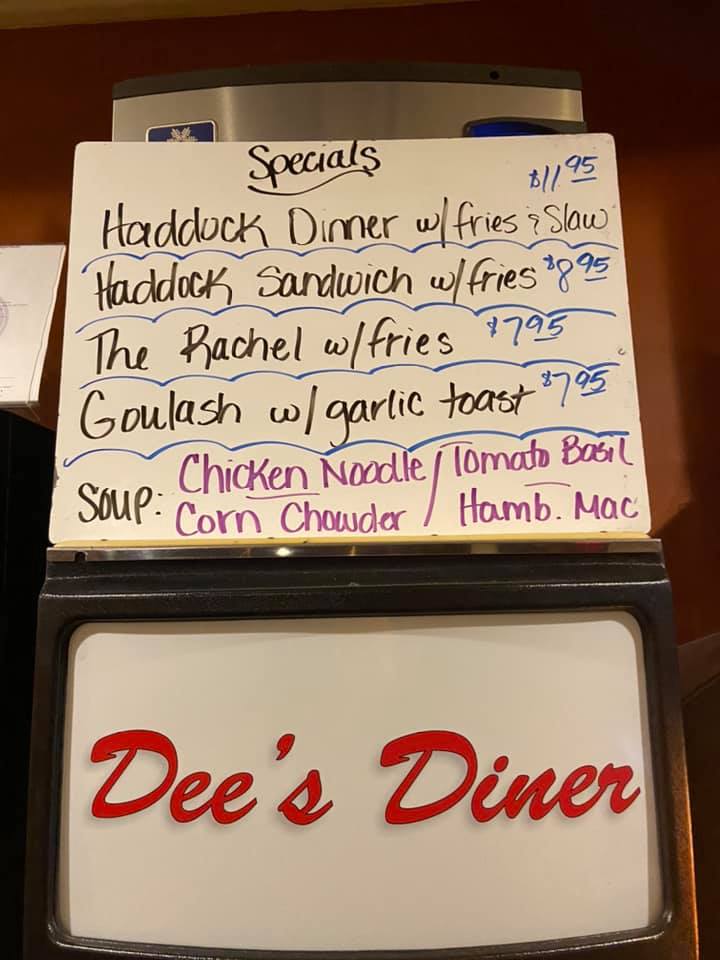 Specials
$11.95
Haddock Dinner w/fries & Slaw
Haddock Sandwich w/fries $8.95
The Rachel w/fries $7.95
Goulash w/ garlic toast $7.95
Soup: Chicken Noodle / Tomato Basil
Corn Chowder / Hamb. Mac
Dee's Diner